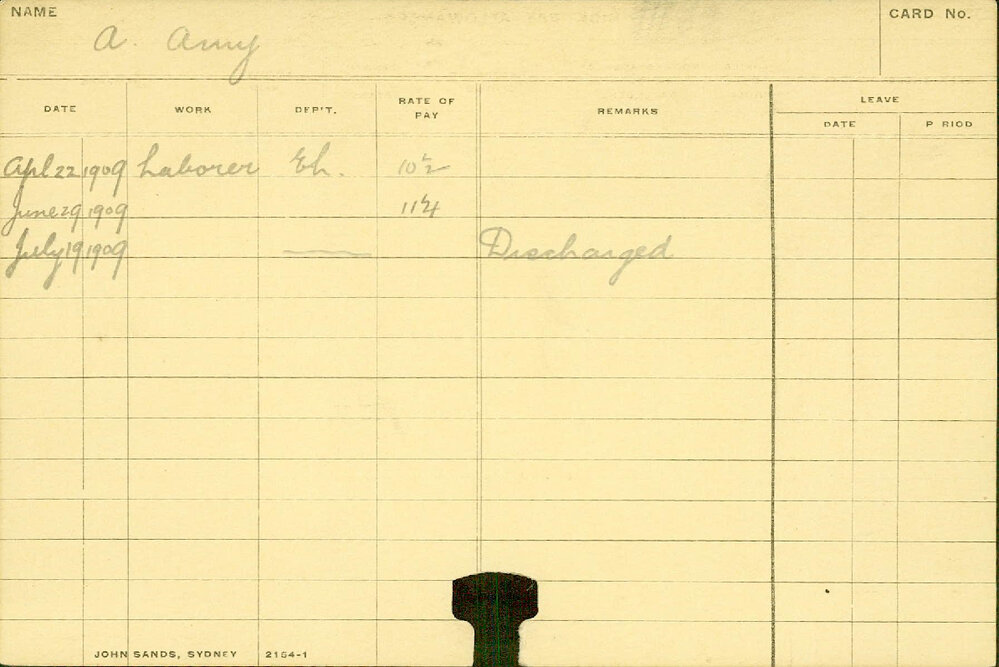 NAME
CARD No.
A. Amy
DATE WORK DEP'T. RATE OF PAY REMARKS LEAVE
DATE P RIOD
Apl 22 1909 Laborer Eh. 10½
June 29 1909 11¼
July 19 1909 Discharged
JOHN SANDS, SYDNEY 2154-1